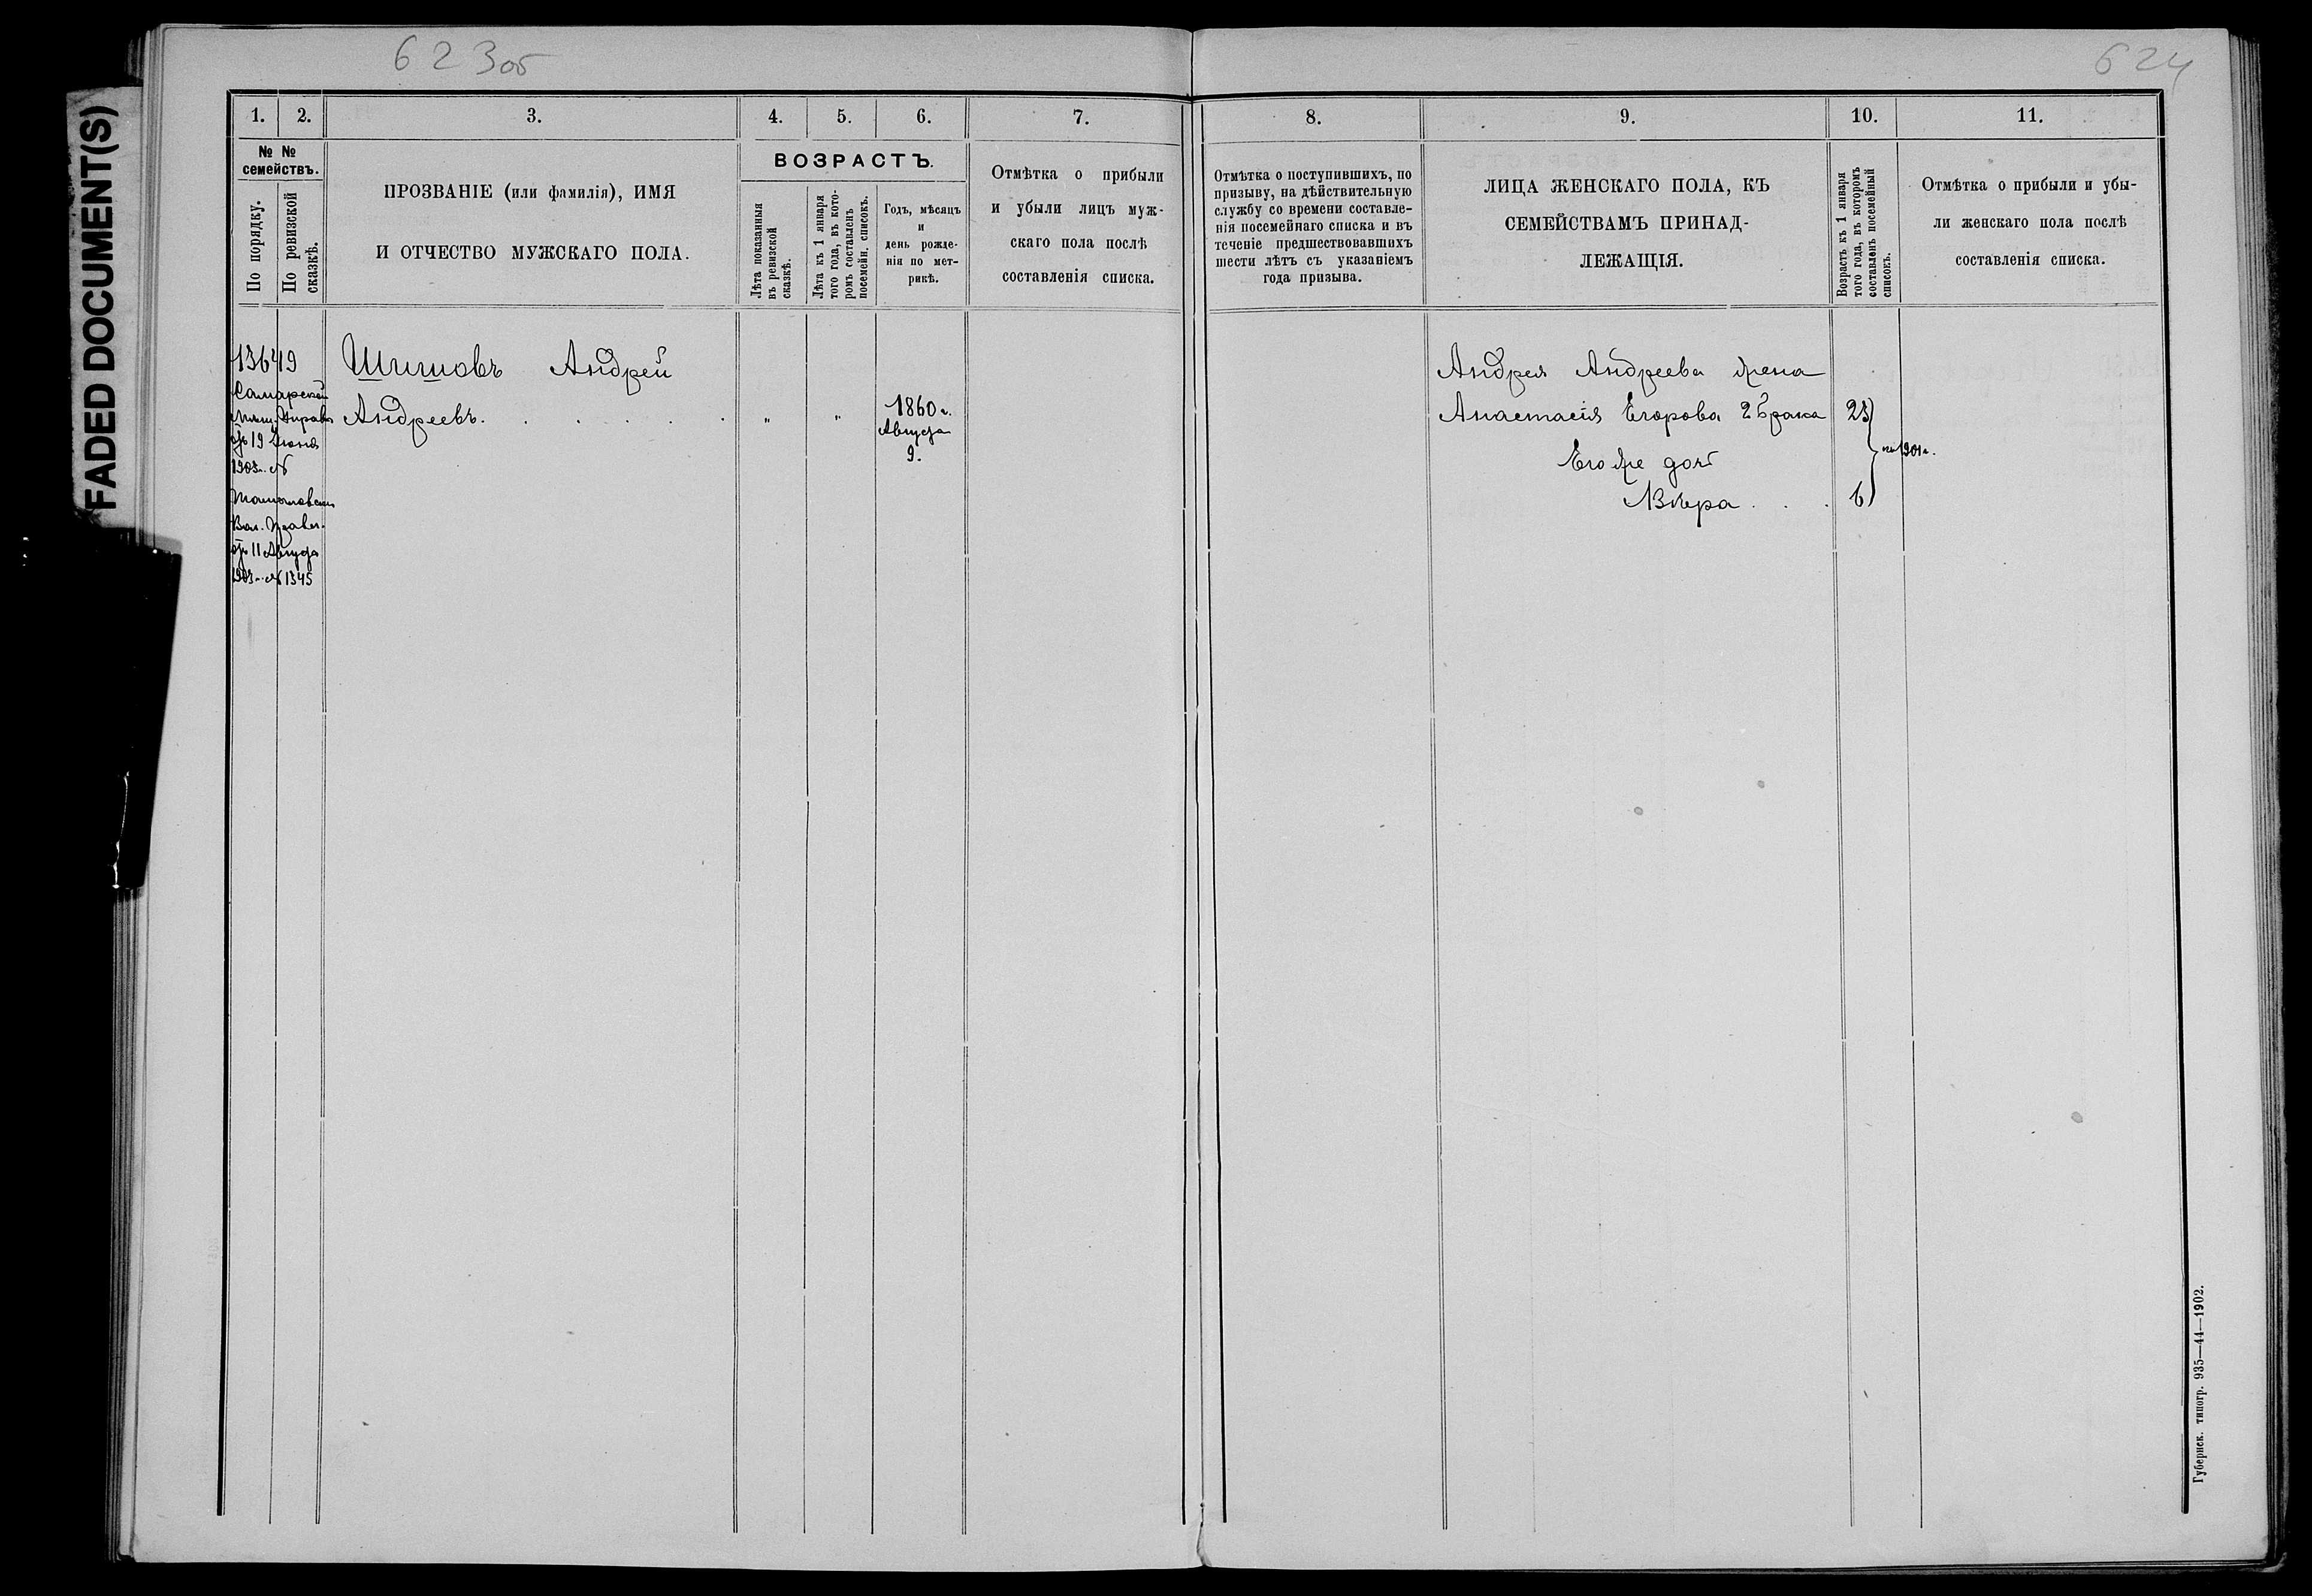 FADED DOCUMENT(S)
623об
624
1. 2. 3. 4. 5. 6. 7.
№ № семействъ.
По порядку.
По ревизской сказкѣ.
ПРОЗВАНІЕ (или фамилія), ИМЯ
И ОТЧЕСТВО МУЖСКАГО ПОЛА.
ВОЗРАСТЪ.
Лѣта показанныя
въ ревизской
сказкѣ.
Лѣта къ 1 января
того года, въ кото-
ромъ составленъ
посемейн. списокъ.
Годъ, мѣсяцъ
и
день рожде-
нія по мет-
рикѣ.
Отмѣтка о прибыли
и убыли лицъ муж-
скаго пола послѣ
составленія списка.
13649
Самарской
Мѣщ. Управы
отъ 19 Іюня
1903 г. №
Вол. Правл.
отъ 11 Августа
1903 г. № 1345
Шишовъ Андрей
Андреевъ. . . . . .
" "
1860 г.
Августа
9.
8. 9. 10. 11.
Отмѣтка о поступившихъ, по
призыву, на дѣйствительную
службу со времени составле-
нія посемейнаго списка и въ
теченіе предшествовавшихъ
шести лѣтъ съ указаніемъ
года призыва.
ЛИЦА ЖЕНСКАГО ПОЛА, КЪ
СЕМЕЙСТВАМЪ ПРИНАД-
ЛЕЖАЩІЯ.
Возрастъ къ 1 января
того года, въ которомъ
составленъ посемейный
списокъ.
Отмѣтка о прибыли и убы-
ли женскаго пола послѣ
составленія списка.
Андрея Андреева жена
Анастасія Егорова 2 брака 23
Его же доч
на 1901 г.
Вѣра . . . 6
Губернск. типогр. 935—44—1902.